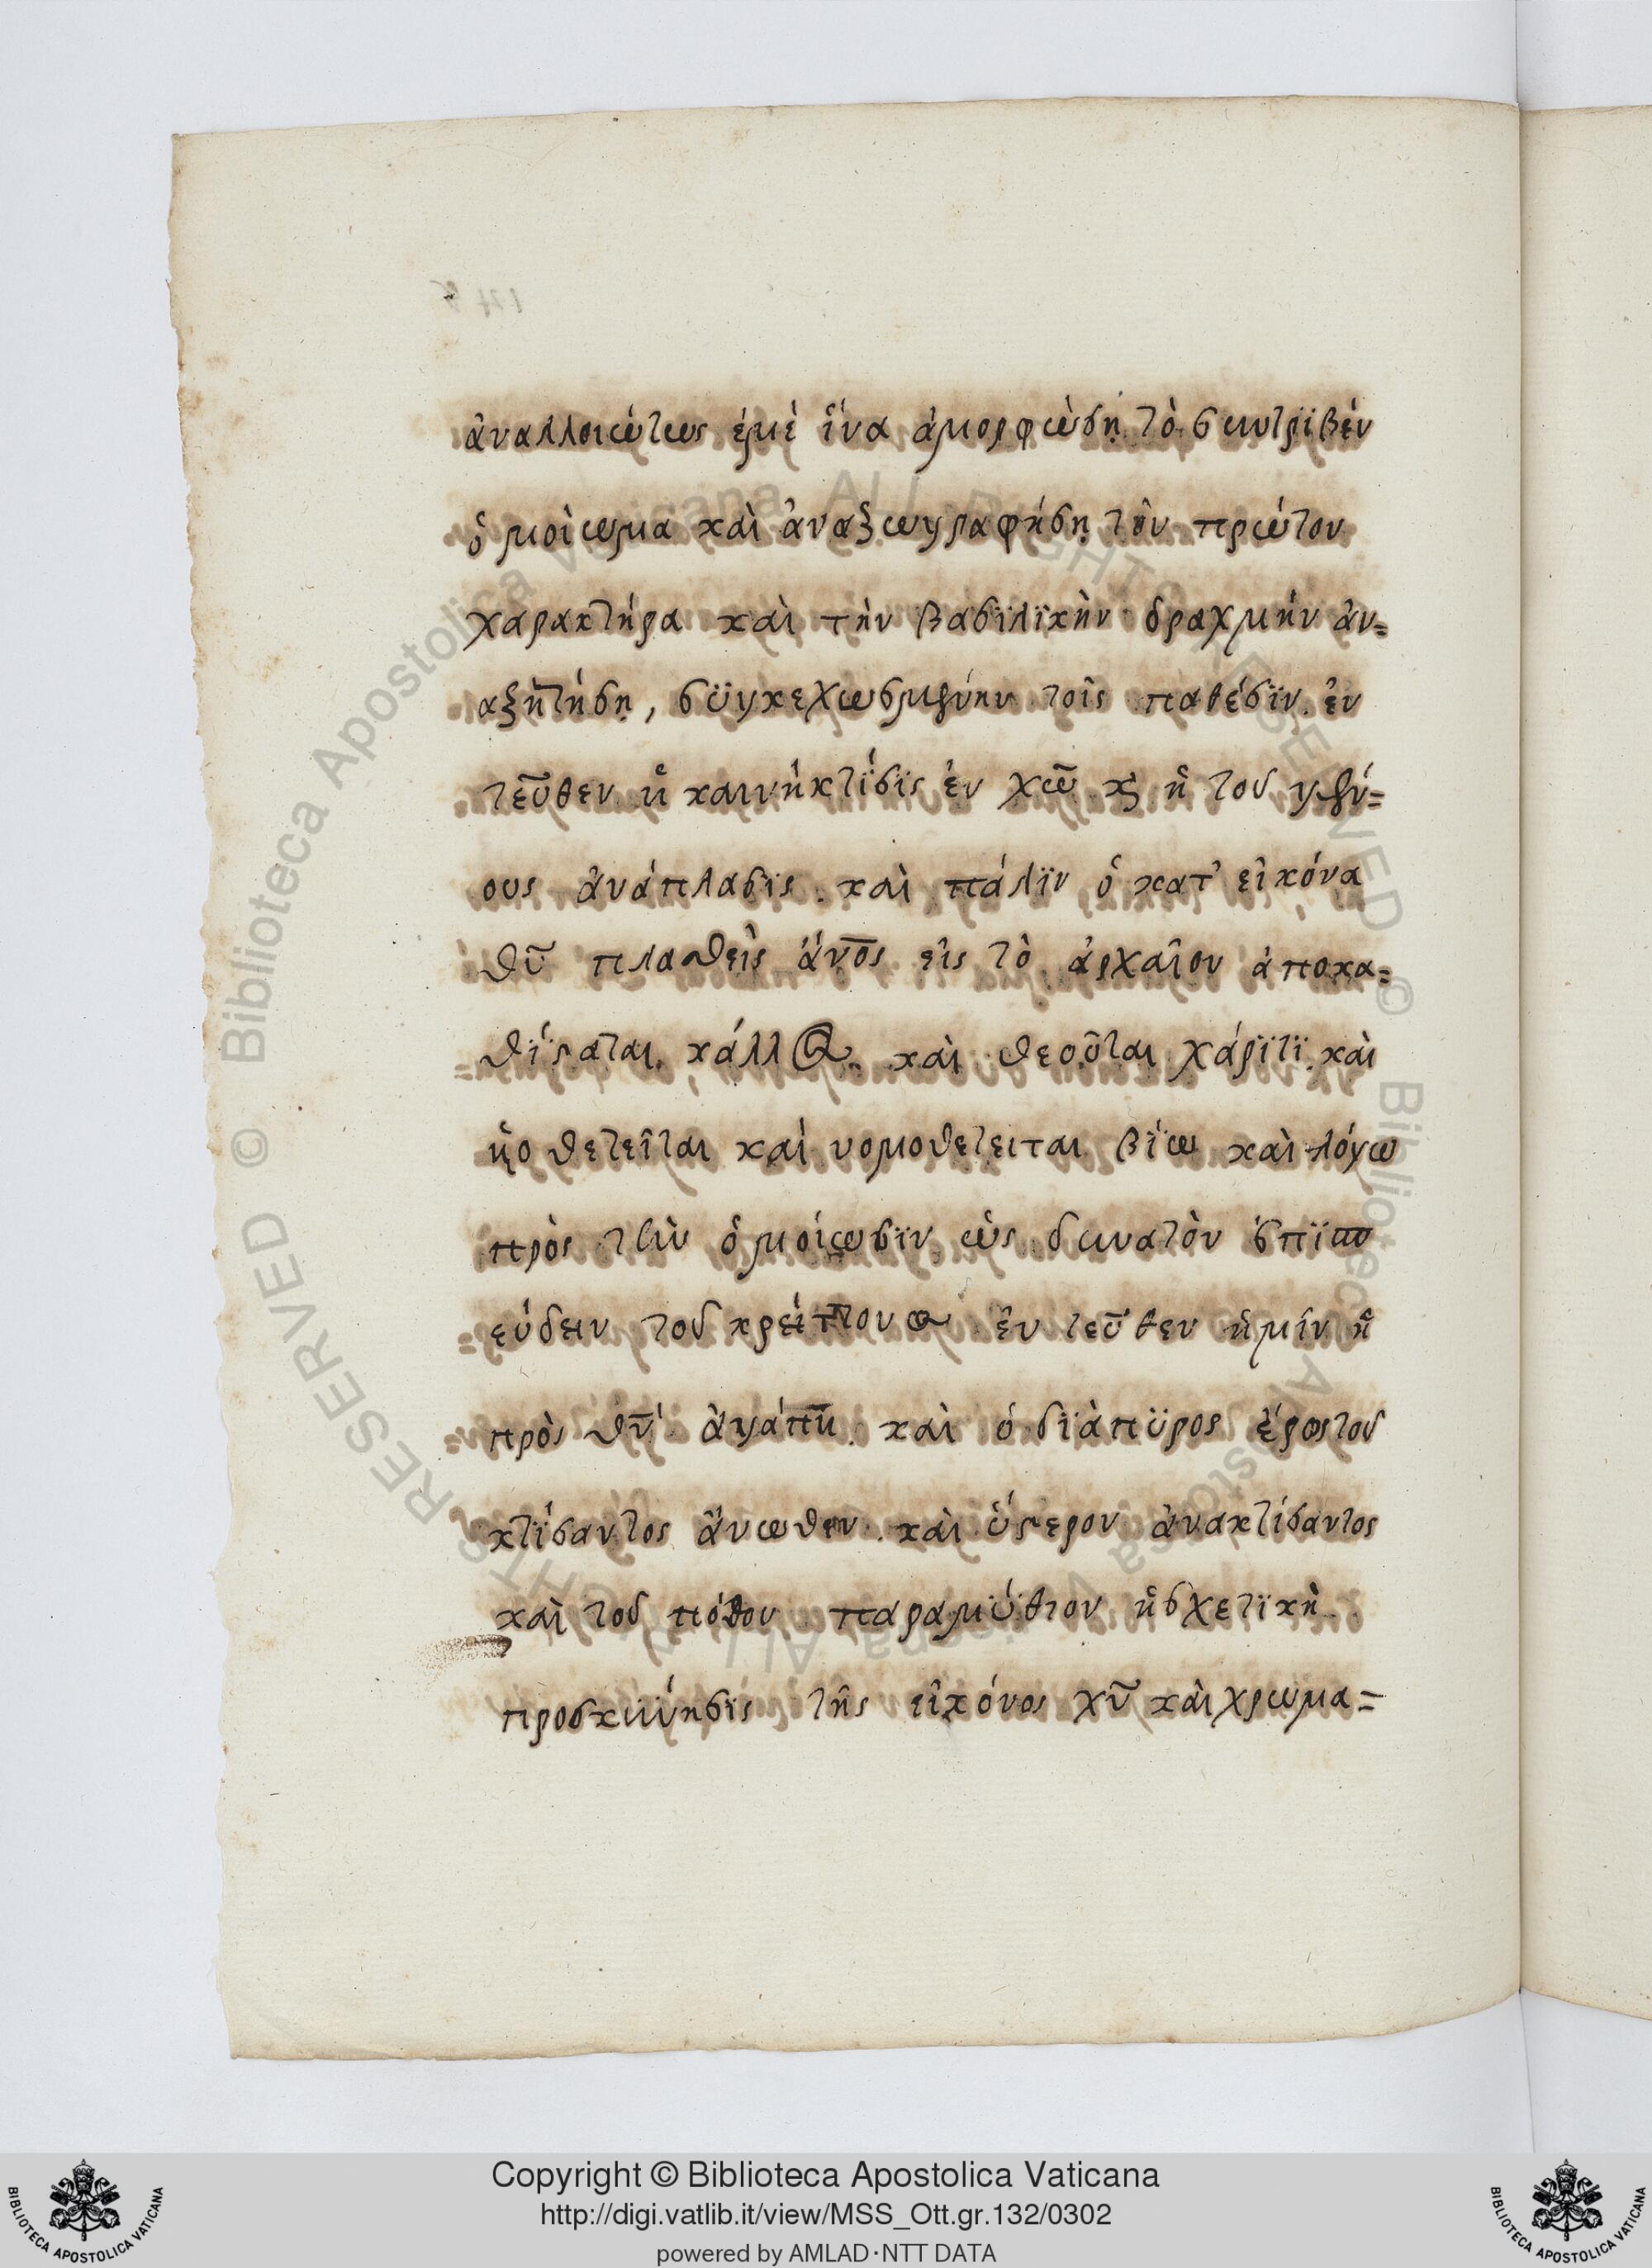 ἀναλλοιώτως ἐμὲ ἵνα ἀμορφώση τὸ συντριβὲν
ὁμοίωμα καὶ ἀναξωγραφήση τὸν πρώτον
χαρακτήρα καὶ τὴν βασϊλϊκὴν δραχμὴν ἀν=
αξητήση, σϋγκεχωσμένην τοῖς παθέσϊν. ἐν
τεῦθεν ἡ καινὴ κτίσϊς ἐν χω̄ κ ἡ τοῦ γέν=
ους ἀνάπλασϊς. καὶ πάλϊν ὁ κατ' εἰκόνα
θῡ πλασθεὶς ἄνο̄ς εἰς τὸ ἀρχαῖον ἀποκα=
θίσταται κάλλος. καὶ θεοῦται χάρϊτϊ. καὶ
ἠοθετεῖται καὶ νομοθετειται βίω καὶ λόγω
πρὸς τὴν ὁμοίωσϊν ὡς δυνατὸν σπϊ
εύδειν τοῦ κρείττονος ἐν τεῦθεν ἡμίν ἡ
πρὸς θν̄ ἀγάπη. καὶ ὁ δϊάπϋρος ἔρως τοῦ
κτίσαντος ἄνωθεν. καὶ ὕστερον ἀνακτίσαντος
καὶ τοῦ πόθου παραμύθιον ἡ σχετϊκὴ
προσκϋνησϊς τῆς εἰκόνος χῡ καὶ χρωμα=
Copyright © Biblioteca Apostolica Vaticana
http://digi.vatlib.it/view/MSS_Ott.gr.132/0302
powered by AMLAD·NTT DATA
BIBLIOTECA APOSTOLICA VATICANA
BIBLIOTECA APOSTOLICA VATICANA